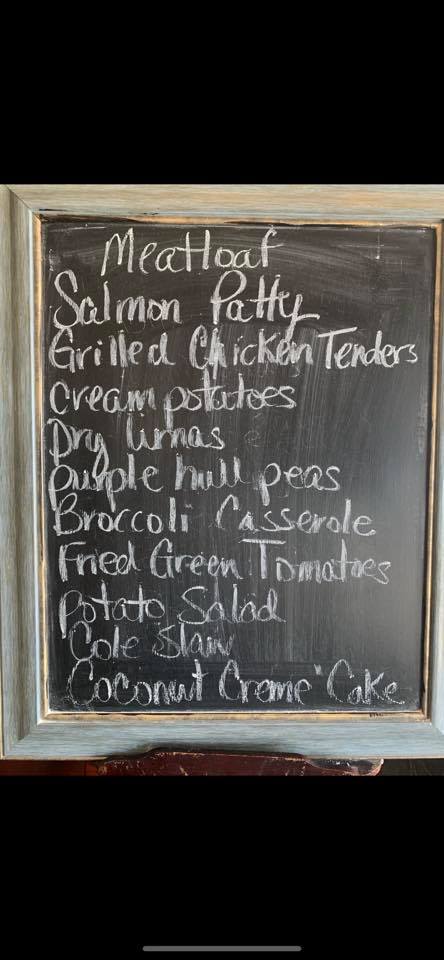 Meatloaf
Salmon Patty
Grilled Chicken Tenders
Cream potatoes
Dry limas
purple hull peas
Broccoli Casserole
Fried Green Tomatoes
Potato Salad
Cole Slaw
Coconut Creme" Cake